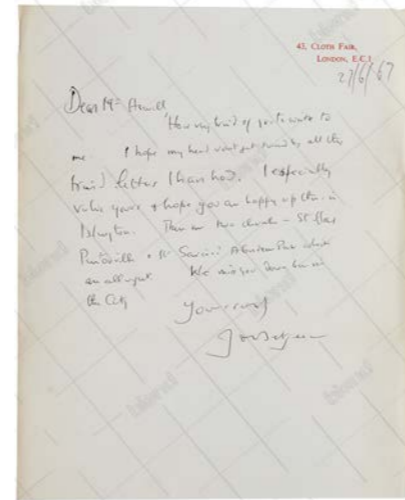 43, CLOTH FAIR,
LONDON, E.C.1
27/6/67
Dear Mr
How very kind of you to write to
me. I hope my head won't get turned by all the
kind letters I have had. I especially
value yours & hope you are happy up there in
Islington. There are two churches – St
Pentonville & St Saviours Aberdeen Park which
are all right. We miss you down here in
the City
Yours